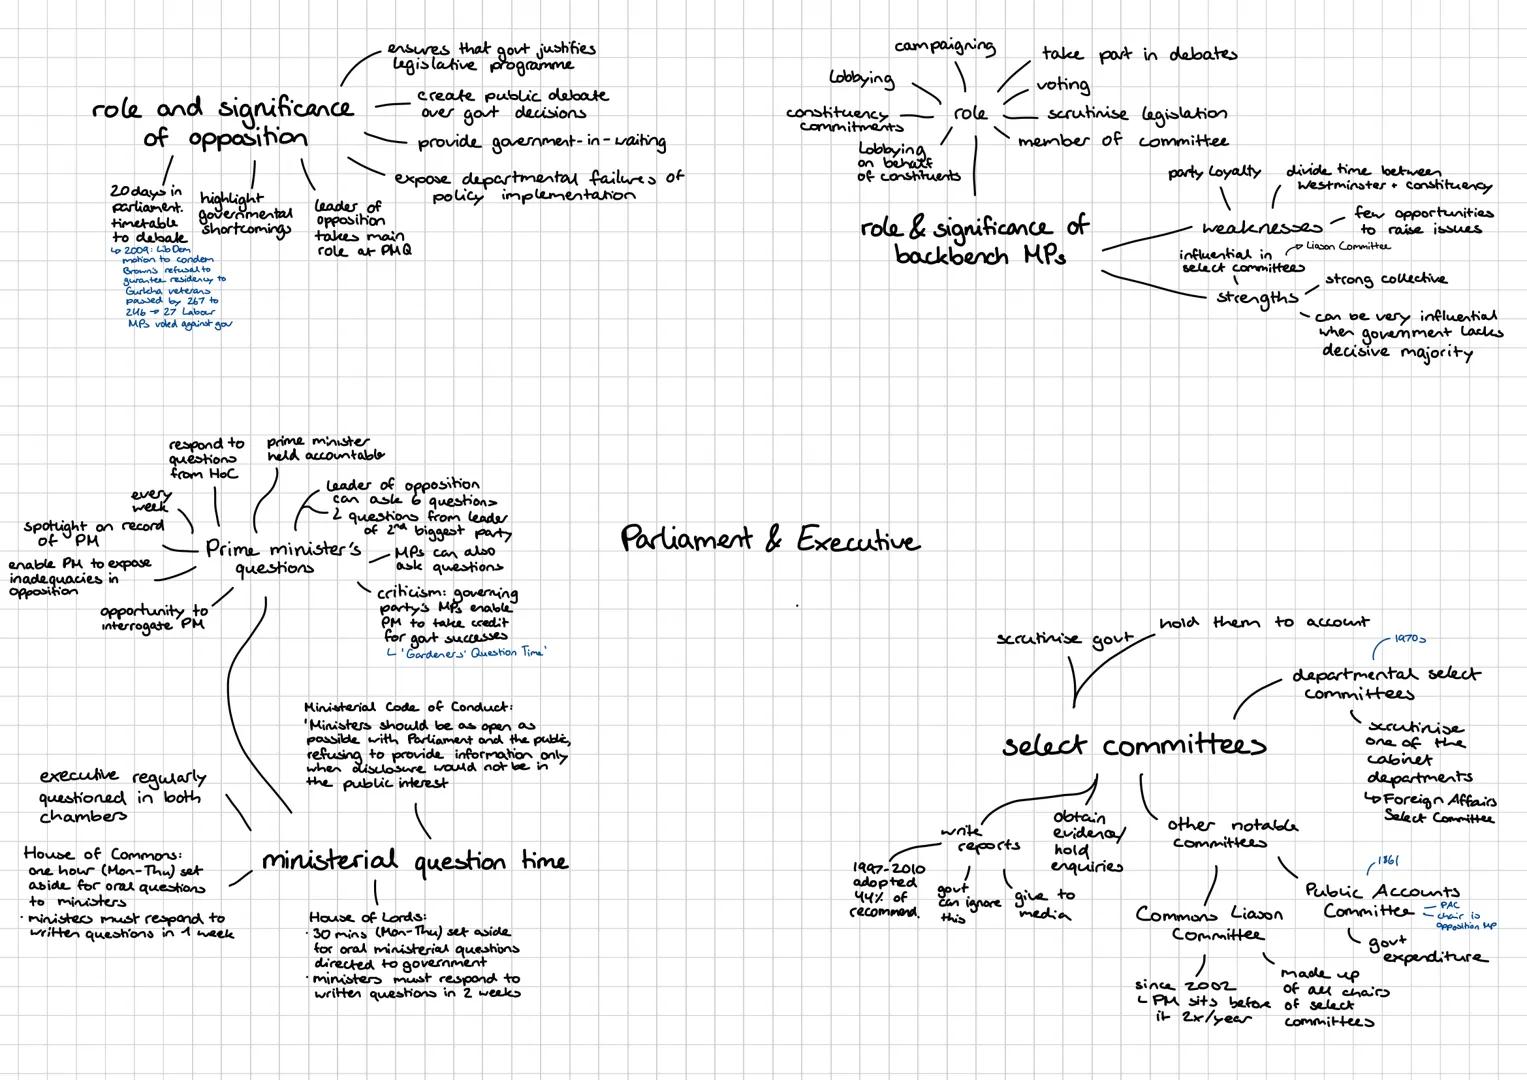 ensures that govt justifies
legislative programme
role and significance
of opposition
create public debate
over govt decisions
provide government-in-waiting
expose departmental failures of
policy implementation
20 days in
parliament.
timetable
to debate
↳ 2009: Lib Dem
motion to condem
Brown's refusal to
gurantee residency to
Gurkha veterans
passed by 267 to
246 → 27 Labour
MPs voted against gov
highlight
governmental
shortcomings
leader of
opposition
takes main
role at PMQ
campaigning
take part in debates
Lobbying
voting
constituency
commitments
role
scrutinise legislation
member of committee
Lobbying
on behalf
of constituents
role & significance of
backbench MPs
party loyalty
divide time between
Westminster + constituency
weaknesses
few opportunities
to raise issues
influential in
select committees
→ Liason Committee
strengths
strong collective
can be very influential
when government lacks
decisive majority
respond to
questions
from HoC
prime minister
held accountable
every
week
leader of opposition
can ask 6 questions
2 questions from leader
of 2nd biggest party
spotlight on record
of PM
Prime minister's
questions
MPs can also
ask questions
enable PM to expose
inadequacies in
opposition
opportunity to
interrogate PM
criticism: governing
party's MPs enable
PM to take credit
for govt successes
↳ 'Gardeners' Question Time'
Parliament & Executive
Ministerial Code of Conduct:
'Ministers should be as open as
possible with Parliament and the public,
refusing to provide information only
when disclosure would not be in
the public interest
executive regularly
questioned in both
chambers
ministerial question time
House of Commons:
one hour (Mon-Thu) set
aside for oral questions
to ministers
· ministers must respond to
written questions in 1 week
House of Lords:
· 30 mins (Mon-Thu) set aside
for oral ministerial questions
directed to government
· ministers must respond to
written questions in 2 weeks
scrutinise govt
hold them to account
1970s
departmental select
committees
select committees
scrutinise
one of the
cabinet
departments
↳ Foreign Affairs
Select Committee
write
reports
obtain
evidence/
hold
enquiries
other notable
committees
1997-2010
adopted
44% of
recommend.
govt
can ignore
this
give to
media
1861
Public Accounts
Committee
- PAC
- chair is
opposition MP
govt
expenditure
Commons Liason
Committee
since 2002
↳ PM sits before
it 2x/year
made up
of all chairs
of select
committees